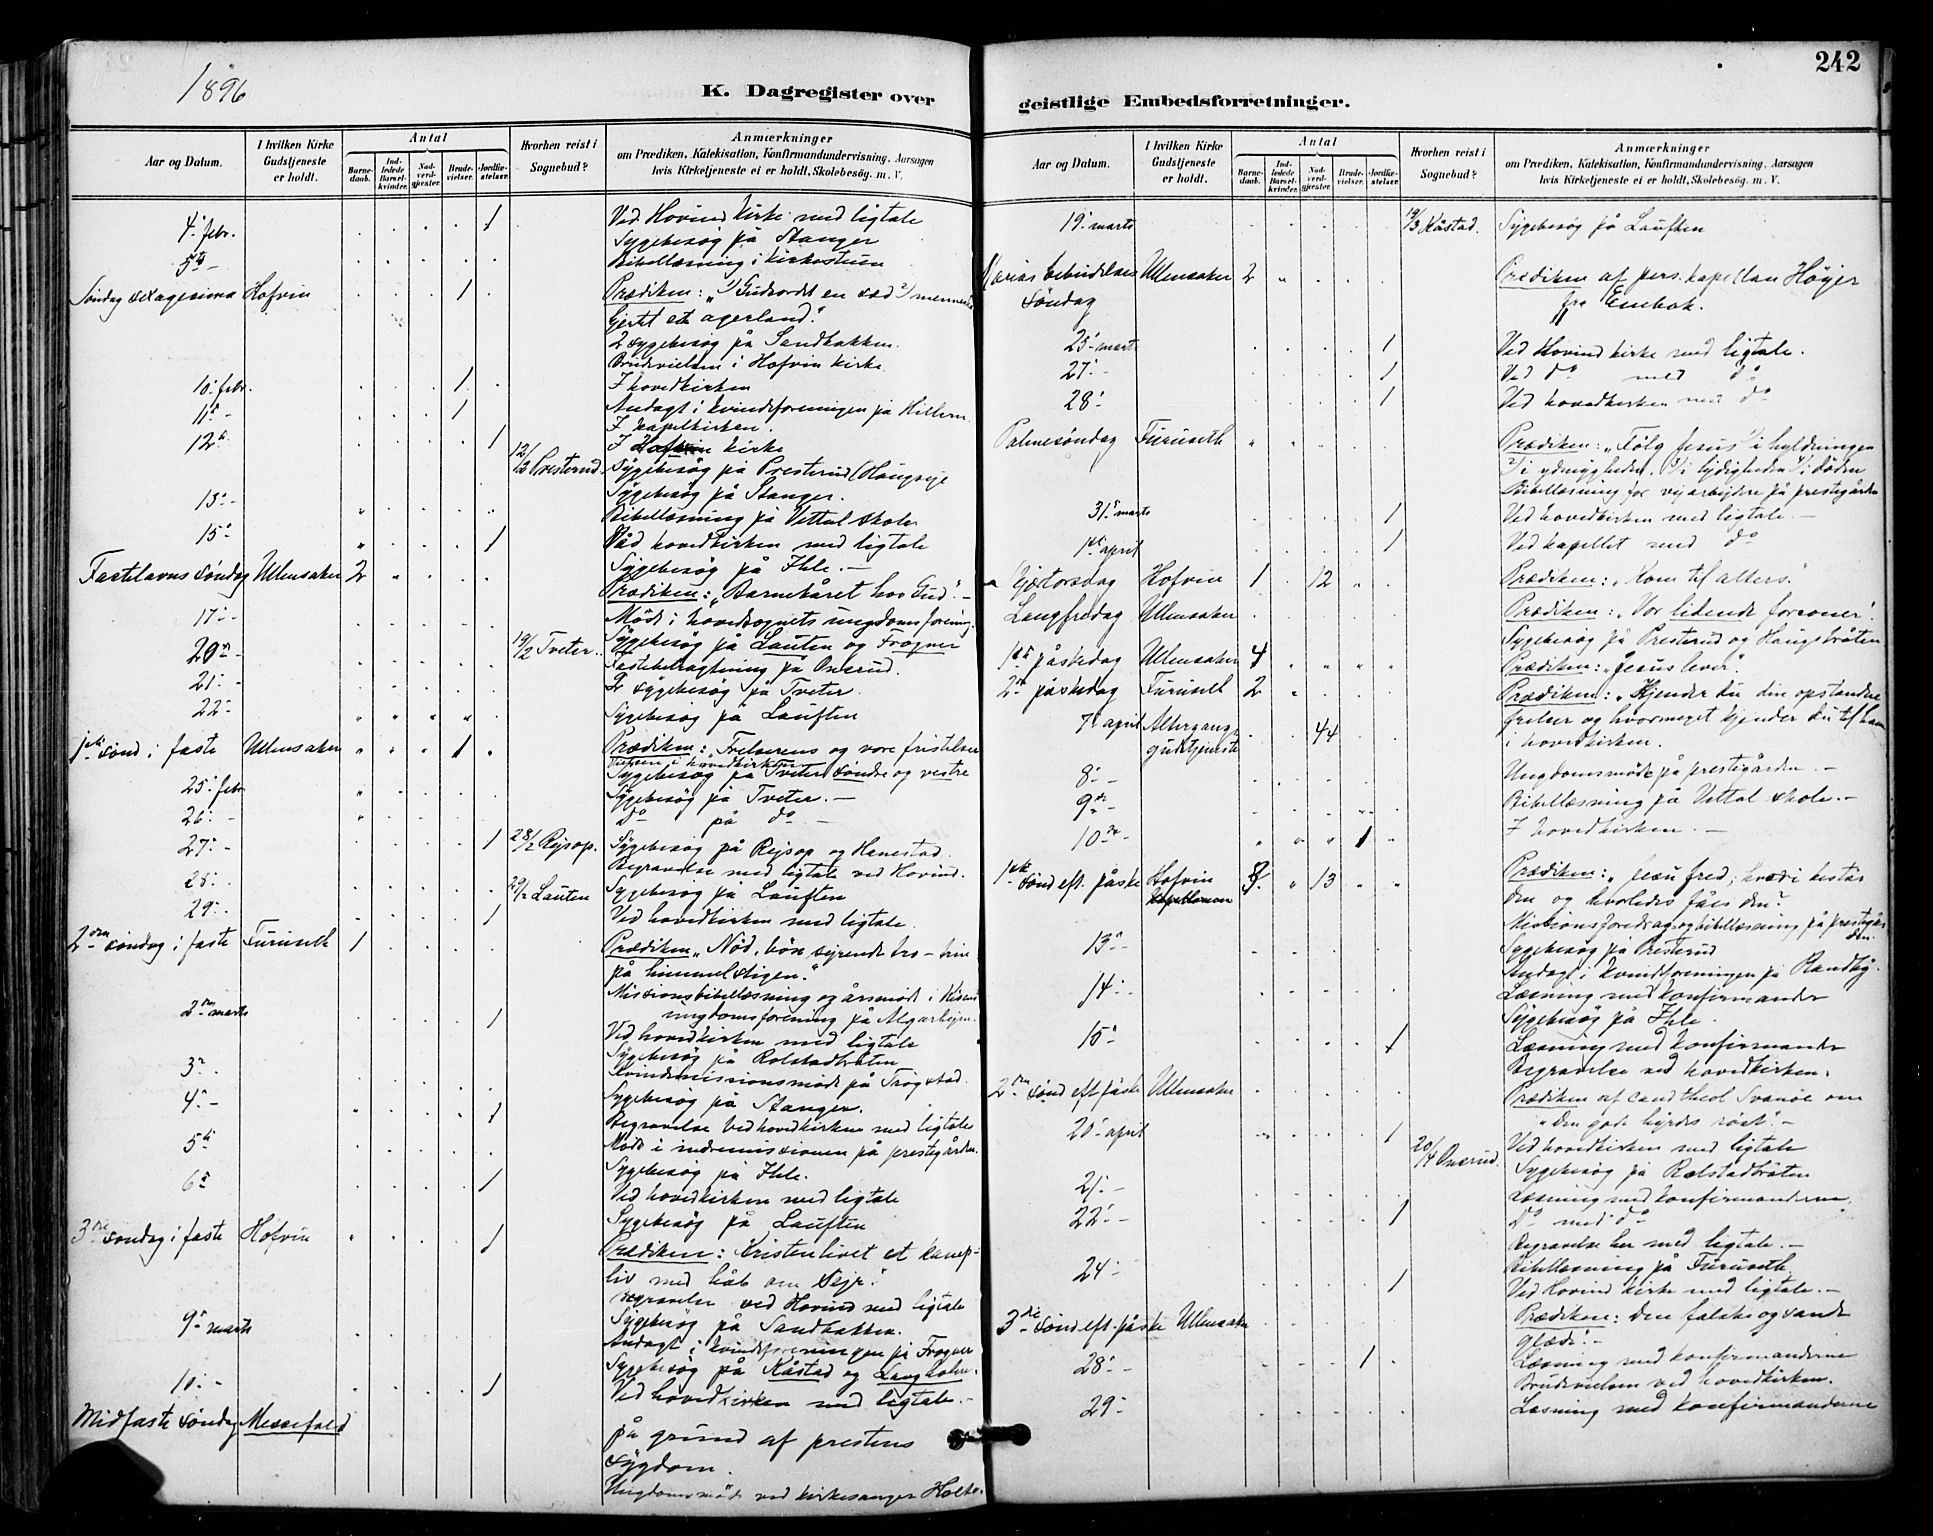 1896
K. Dagregister over
Aar og Datum.
I hvilken Kirke Gudstjeneste er holdt.
Antal
Barnedaab.
Indledede Barselkvinder.
Nadverdgjester
Brudevielser.
Jordfæstelser.
Hvorhen reist i Sognebud?
Anmærkninger
om Prædiken, Katekisation, Konfirmandundervisning, Aarsagen
hvis Kirketjeneste ei er holdt, Skolebesøg. m. V.
4. febr. 1 Ved Hovind kirke med ligtale
Sygebesøg på Stanger
5te - Bibellæsning i kirkestuen
Søndag sexagesima Hofvin 1 Prædiken: „1/ Gudsordet en sæd 2/ menneske
hjertet et agerland."
2 sygebesøg på Sandbakken.
Brudevielsen i Hofvin kirke.
10. febr. 1 I hovedkirken
11te - 1 Andagt i kvindeforeningen på
I kapelkirken.
12te 1 I Hofvin kirke
12/2 Presterud. Sygebesøg på Presterud/Haugseje
Sygebesøg på Stanger.
13. - Bibellæsning på Vettal skole
15. 1 Ved hovedkirken med ligtale
Sygebesøg på Ihle. -
Fastelavns søndag Ullensaker 2 Prædiken: „Barnekåret hos Gud". -
17. - Møde i hovedsognets ungdomsforening.
20. - 19/2 Tveter. Sygebesøg på Lauten og Frogner
Fastebetragtning på Onsrud.
21. - 2 sygebesøg på Tveter.
22. Sygebesøg på Lauften
1ste sønd i faste Ullensaker 1 Prædiken: „Frelserens og vore fristelser
Vielsen i hovedkirken
Sygebesøg på Tveter søndre og vestre
25. febr. Sygebesøg på Tveter. -
26. - do på do -
27. - 1 28/2 Rejsop. Sygebesøg på Rejsop og Henestad.
Begravelse med ligtale ved Hovind.
28. - 29/2 Lauten Sygebesøg på Lauften
29. - 1 Ved hovedkirken med ligtale.
2den søndag i faste Furuseth 1 Prædiken „Nød, bøn sejrende tro - trin
på himmelstigen."
Missionsbibellæsning og årsmøde i
2den marts 1 ungdomsforening på Algarhejm.
Ved hovedkirken med ligtale
Sygebesøg på Rolstadbråten
3. - Kvindemissionsmøde på Trøgstad.
Sygebesøg på Stanger.
4. - 1 Begravelse ved hovedkirken med ligtale
5te Møde i indremissionen på prestegården.
Sygebesøg på Ihle.
6te 1 Ved hovedkirken med ligtale
Sygebesøg på Lauften
3die søndag i faste Hofvin 1 Prædiken: Kristenlivet et kamp-
liv med håb om sejr."
Begravelse ved Hovind med ligtale
9. marts Sygebesøg på Sandbakken.
Andagt i kvindeforeningen på Frogner
Sygebesøg på Kåstad og Langholen.
10. - 1 Ved hovedkirken med ligtale. -
Midfaste søndag Messefald på grund af prestens
sygdom.
Ungdomsmøde ved kirkesanger Holte.
242
geistlige Embedsforretninger.
Aar og Datum.
I hvilken Kirke Gudstjeneste er holdt.
Antal
Barnedaab.
Indledede Barselkvinder.
Nadverdgjester
Brudevielser.
Jordfæstelser.
Hvorhen reist i Sognebud?
Anmærkninger
om Prædiken, Katekisation, Konfirmandundervisning, Aarsagen
hvis Kirketjeneste ei er holdt, Skolebesøg. m. V.
19. marts 19/3 Kåstad. Sygebesøg på Lauften
Marias bebudelses Ullensaker 2 Prædiken af pers. kapellan Høyer
søndag fra Enebak.
25. marts 1 Ved Hovind kirke med ligtale.
27. - 1 Ved do med do
28. 1 Ved hovedkirken med do
Palmesøndag Furuseth Prædiken: „Følg Jesus 1/ i hyldningen
2/ i ydmygheden. 3/ i lydigheden 4/ i døden
Bibellæsning for vejarbejdere på prestegården
31. marts 1 Ved hovedkirken med ligtale. -
1ste april 1 Ved kapellet med do
Skjærtorsdag Hofvin 1 12 Prædiken: „Kom til alters."
Langfredag Ullensaker Prædiken: „Vor lidende forsoner".
Sygebesøg på Presterud og Haugsbråten
1ste påskedag Ullensaker 4 Prædiken: „Jesus lever".
2den påskedag Furuseth 2 Prædiken: „Kjender du din opstandne
frelser og hvormeget kjender du til ham
7. april Altergangs- 44 i hovedkirken.
gudstjeneste
8. - Ungdomsmøde på prestegården. -
9de - Bibellæsning på Vettal skole. -
10de - 1 I hovedkirken. -
1ste sønd eft. påske Hofvin 3 13 Prædiken: „Jesu fred; hvori består
den og hvorledes fåes den?
Missionsforedrag og bibellæsning på prestegår-
den.
13. - Sygebesøg på Presterud
Andagt i kvindeforeningen på Randby.
14. - Læsning med konfirmander
Sygebesøg på Ihle.
15. 1 Læsning med konfirmander
Begravelse ved hovedkirken.
2den sønd eft påske Ullensaker Prædiken af cand theol Svanøe om
„Den gode hyrdes røst". -
20. april 1 Ved hovedkirken med ligtale
20/4 Onsrud. Sygebesøg på Rolstadbråten
21. - Læsning med konfirmanderne.
22. - 1 Do med do
Begravelse her med ligtale. -
24. - Bibellæsning på Furuseth.
1 Ved Hovind kirke med ligtale. -
3die sønd. eft. påske Ullensaker Prædiken: Den falske og sande
glæde. -
Læsning med konfirmanderne
28. - 1 Brudevielsen ved hovedkirken.
29. - Læsning med konfirmanderne